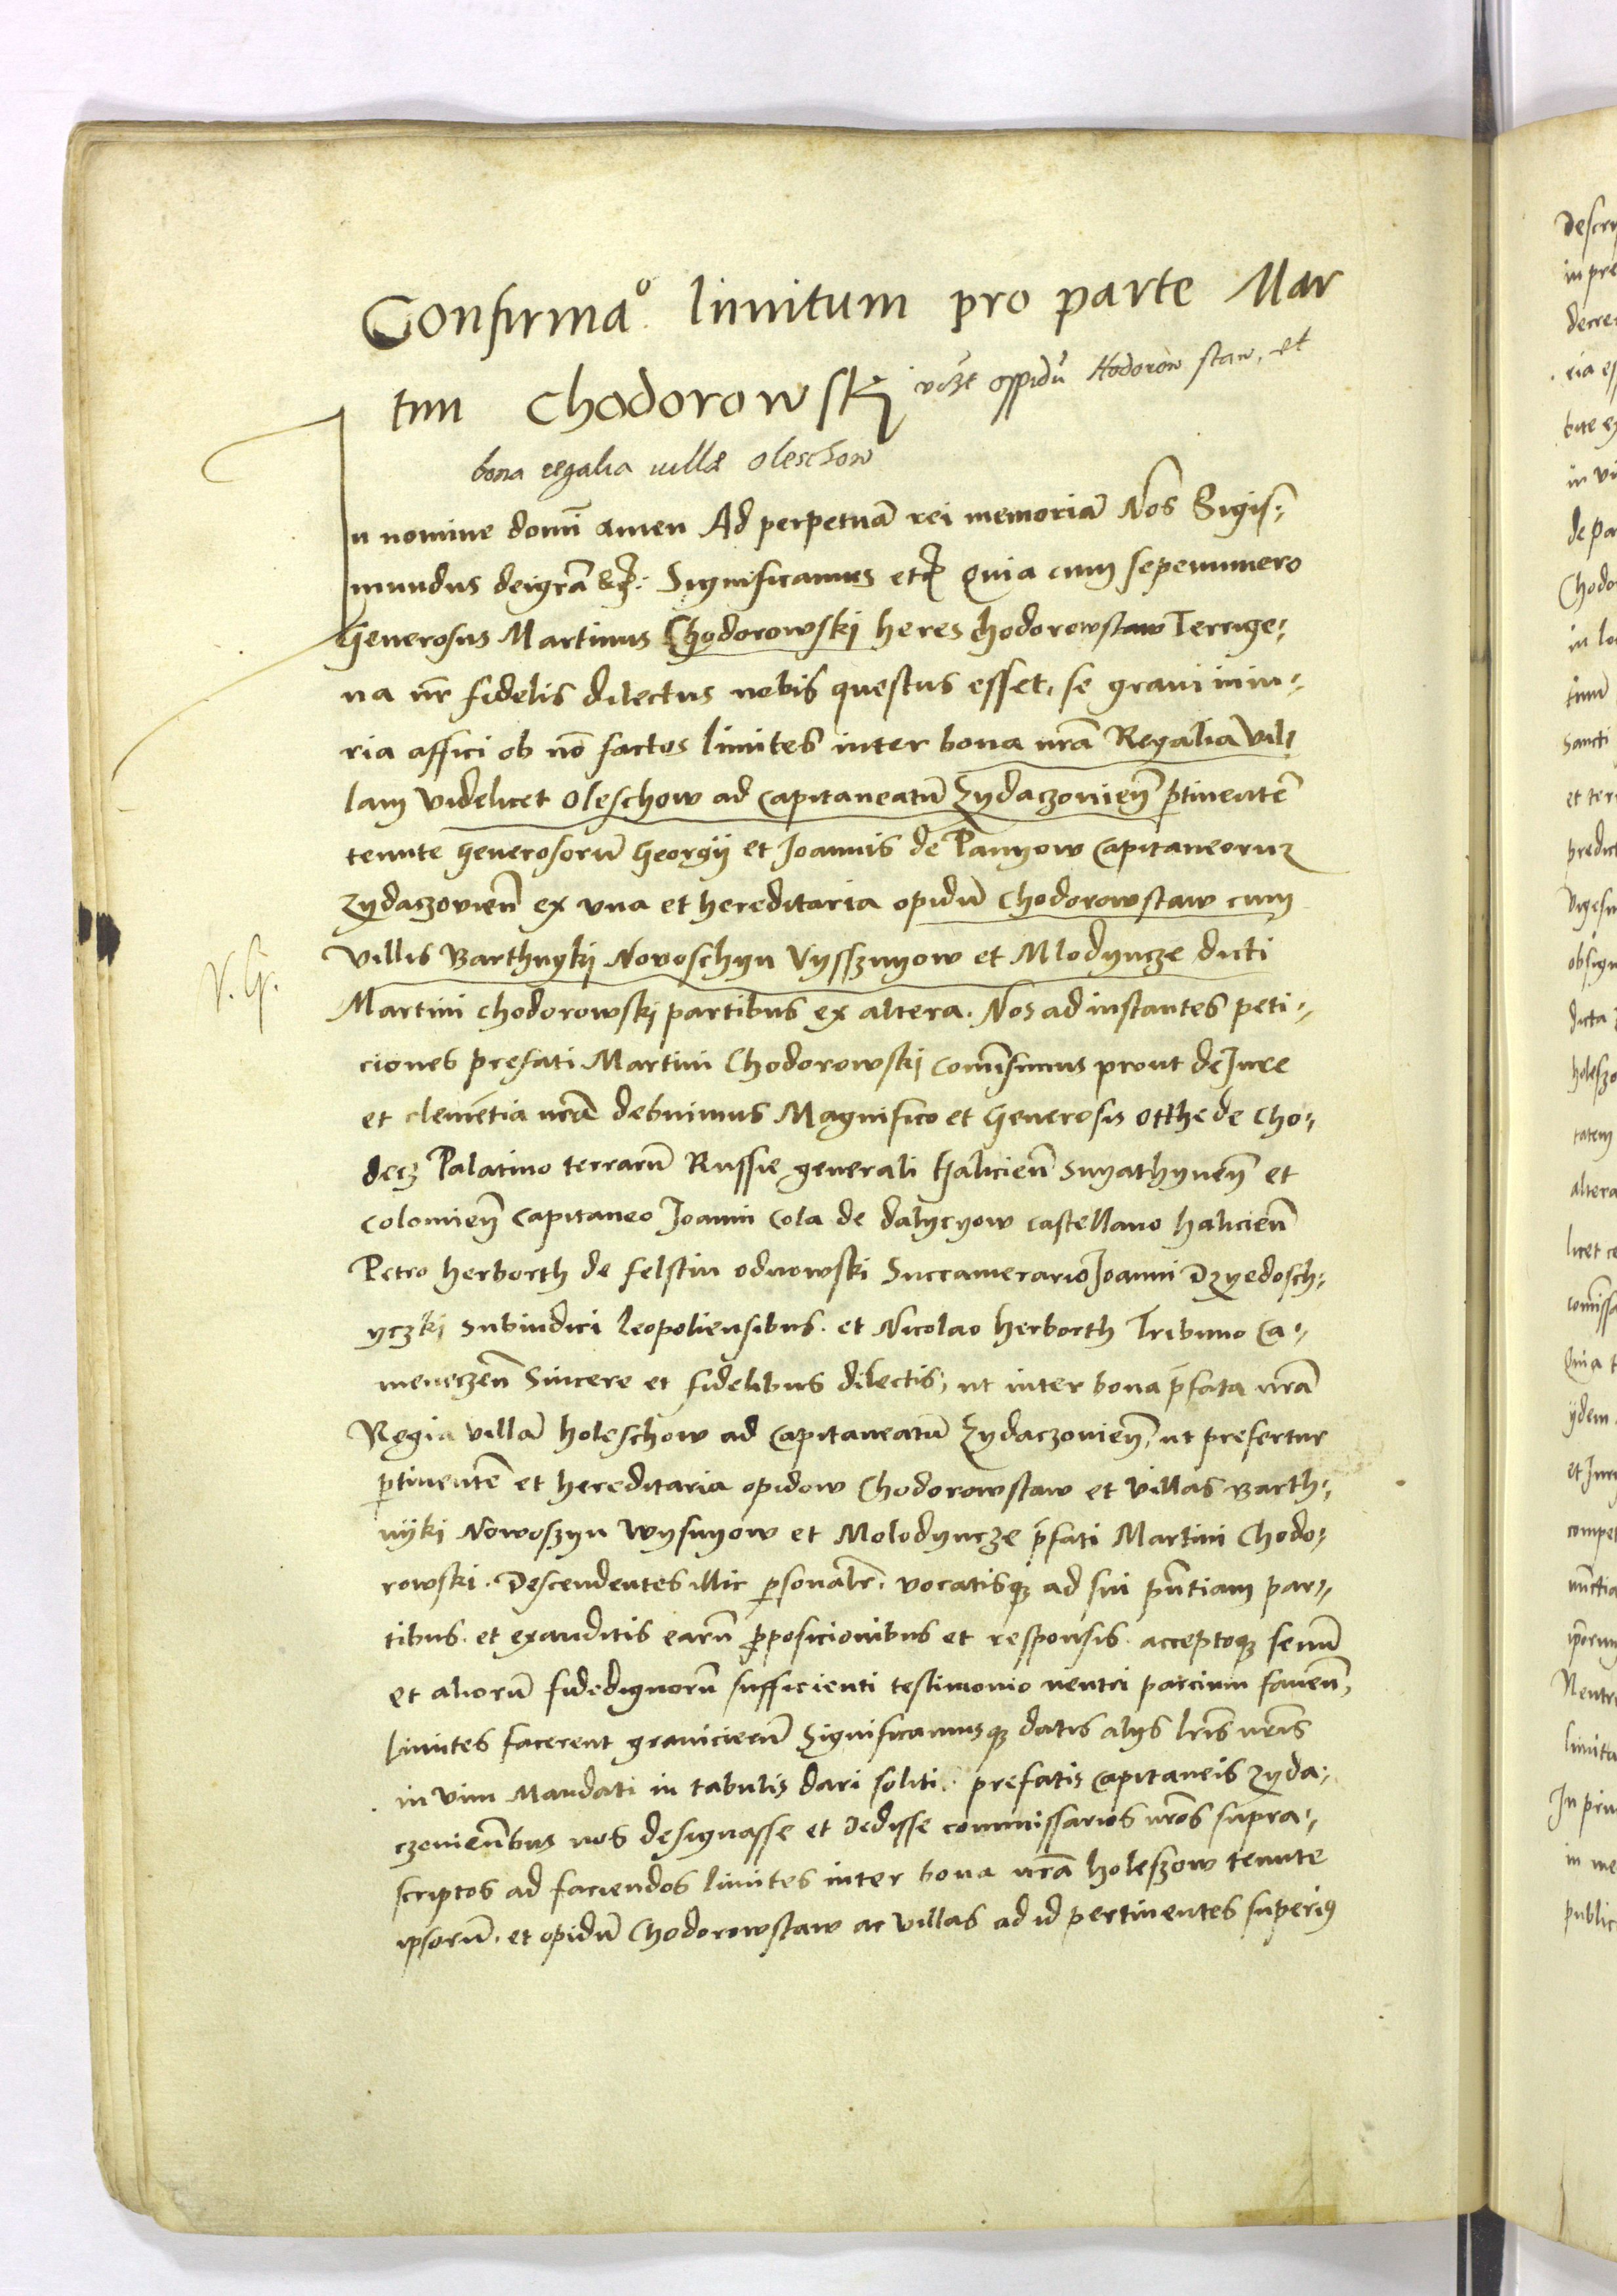 Confirmaᵒ. limitum pro parte Mar
tini Chodorowskij
inter oppidū Hodorow staw, et
bona regalia villæ Oleschow
In nomine domī amen Ad perpetuā rei memoriā Nos Sigis:
mundus dei grā &c: Significamus etc Quia cum sepenumero
Generosus Martinus Chodorowskij heres chodorowstaw Terrige:
na nr̄ fidelis dilectus nobis questus esset, se graui iniu:
ria affici ob nō factos limites inter bona nrā Regalia Vil
lam Videlicet Oleschow ad Capitaneatū Zydaczouien̄ ꝑtinentē
tenute Generosorū Georgij et Joannis de Panyow Capitaneorum
Zydaczouien̄ ex vna et hereditaria opidū Chodorowstaw cum
Villis Barthnykij Novoschyn Vysschnyow et Mlodyncze dicti
V. G.
Martini chodorowskj partibus ex altera. Nos ad instantes peti:
ciones prefati Martini Chodorowskj Comisimus prout de Jure
et clemētia nrā debuimus Magnifico et Generosis Otthe de Cho:
decz Palatino terrarū Russie generali Halicien̄ Snyathynen̄ et
Colomien̄ Capitaneo Joanni Cola de dalyeyow castellano halicien̄
Petro herborth de felstin odnowski Succamerario Joanni Dzyedosch:
yczkj subiudici leopoliensibus. et Nicolao herborth Tribuno Ca:
meneczen̄ Sincere et fidelibus dilectis, ut inter bona p̄fata nrā
Regia villā holeschow ad Capitaneatū Zydaczouien̄, ut prefertur
ꝑtinentē et hereditaria opidow Chodorowstaw et Villas Barth:
nÿki Nowoszyn Wysnyow et Molodyncze p̄fati Martini Chodo:
rowski. Descendentes illic ꝑsonalr̄. vocatisqꝫ ad sui pn̄tiam par:
tibus. et exauditis earū ꝓposicionibus et responsis. acceptoqꝫ senū
et aliorū fidedignorū sufficienti testimonio neutri parcium fauen̄,
limites facerent granicierū Significamusqꝫ datis alijs lrīs nrīs
in vim Mandati in tabulis dari soliti. prefatis Capitaneis Zyda:
czouien̄bus nos designasse et dedisse commissarios nrōs supra:
scriptos ad faciendos limites inter bona nrā holeszow tenute
ipsorū. et opidū Chodorowstaw ac Villas ad id pertinentes superiꝰ